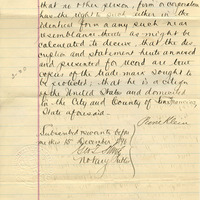 that no other person, firm or corporation
has the right to such either in the
identical form or any such near
resemblance thereto as might be
calculated to deceive, that the des-
cription and statement hereto annexed
and presented for record are true
copies of the trade mark sought to
be protected, that he is a citizen
of the United States and domiciled
in the City and County of San Francisco
State aforesaid.
Subscribed and sworn to before
me this 15 December
Notary Public